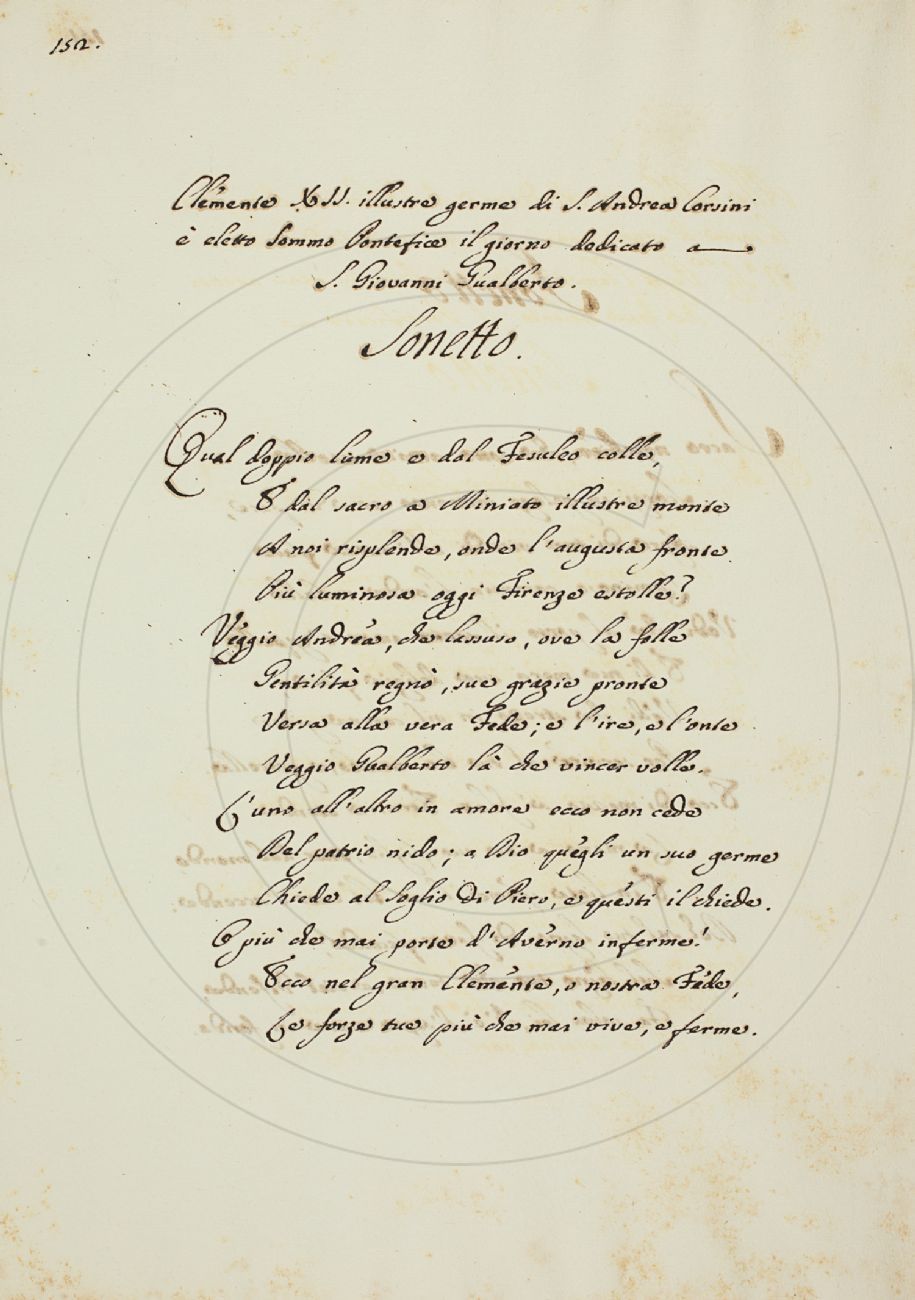 152.
Clemente XII. illustre germe di S. Andrea Corsini
è eletto Sommo Pontefice il giorno dedicato a
S. Giovanni Gualberto.
Sonetto.
Qual doppio lume e dal Fesuleo colle,
E dal sacro a Miniato illustre monte
A noi risplende, onde l'augusta fronte
Più luminosa oggi Firenze estolle?
Veggio Andrea, che lassuso, ove la folle
Gentilità regnò, sue grazie pronte
Versa alla vera Fede; e l'ire, e l'onte
Veggio Gualberto là che vincer volle.
L'uno all'altro in amore ecco non cede
Del patrio nido; a Dio quegli un suo germe
Chiede al Soglio di Piero, e questi il chiede.
O più che mai porte d'Averno inferme!
Ecco nel gran Clemente, o nostra Fede,
Le forze tue più che mai vive, e ferme.